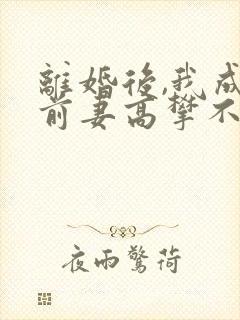 離婚後,我成
前妻高攀不
夜雨驚荷